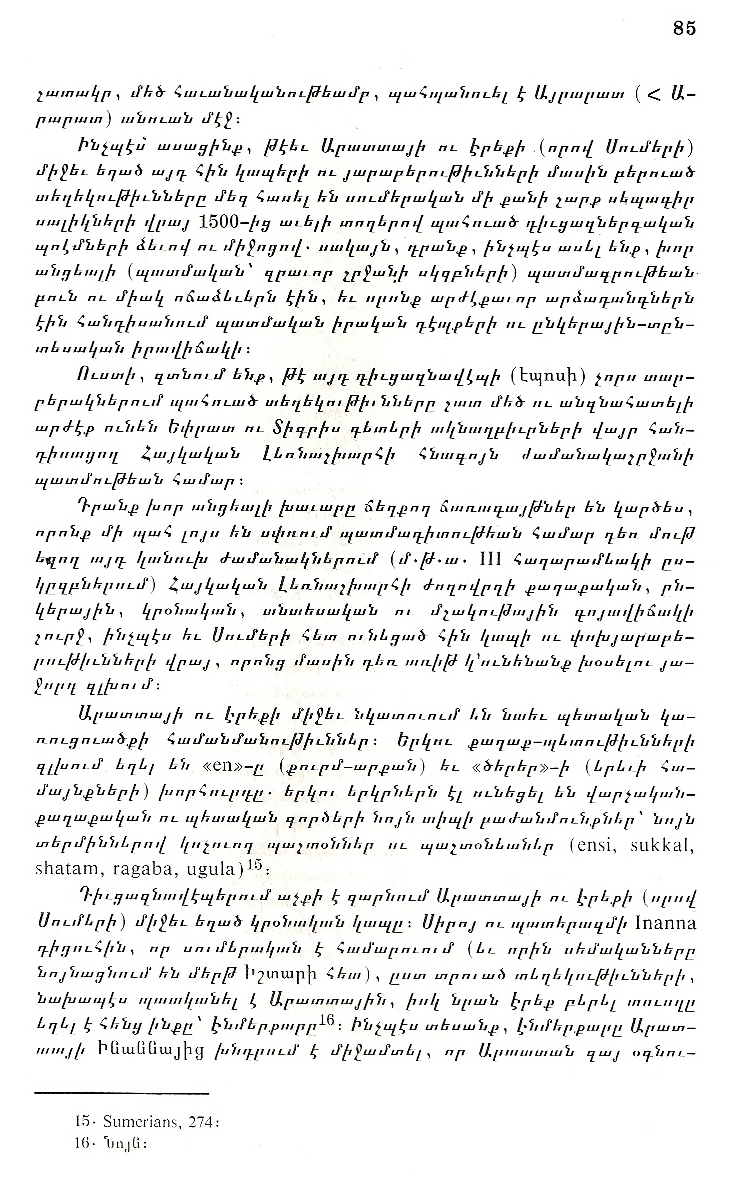 85
շատակր, մեծ հաւանականութեամբ, պահպանուել է Այրարատ (< Ա-
րարատ) անուան մէջ:
Ինչպէս ասացինք, թէեւ Արատտայի ու էրեքի (որով Սումերի)
միջեւ եղած այդ հին կապերի ու յարաբերութիւնների մասին բերուած
տեղեկութիւնները մեզ հասել են սումերական մի քանի շարք սեպագիր
սալիկների վրայ 1500-ից աւելի տողերով պահուած դիւցազներգական
պոէմների ձեւով ու միջոցով. սակայն, դրանք, ինչպէս ասել ենք, խոր
անցեալի (պատմական՝ գրաւոր շրջանի սկզբների) պատմագրութեան
բուն ու միակ ոճաձեւերն էին, եւ սրոնք արժէքաւոր արձագանգներն
էին հանդիսանում պատմական իրական դէպքերի ու ընկերային-տըն-
տեսական իրավիճակի:
Ուստի, գտնում ենք, թէ այդ դիւցազնավէպի (էպոսի) չորս տար-
բերակներում պահուած տեղեկութիւնները շատ մեծ ու անգնահատելի
արժէք ունեն Եփրատ ու Տիգրիս գետերի ակնաղբիւրների վայր հան-
դիսացող Հայկական Լեռնաշխարհի հնագոյն ժամանակաշրջանի
պատմութեան համար:
Դրանք խոր անցեալի խաւարը ճեղքող ճառագայթներ են կարծես,
որոնք մի պահ լոյս են սփռում պատմագիտութեան համար դեռ մութ
եղող այդ կանուխ ժամանակներում (մ.թ.ա. III հազարամեակի ըս-
կըզբներում) Հայկական Լեռնաշխարհի ժողովրդի քաղաքական, ըն-
կերային, կրօնական, տնտեսական ու մշակութային գոյավիճակի
շուրջ, ինչպէս եւ Սումերի հետ ունեցած հին կապի ու փոխյարաբե-
րութիւնների վրայ, որոնց մասին դեռ առիթ կ՚ունենանք խօսելու յա-
ջորդ գլխում:
Արատտայի ու էրեքի միջեւ նկատուում են նաեւ պետական կա-
ռուցուածքի համանմանութիւններ: Երկու քաղաք-պետութիւնների
գլխում եղել են «en»-ը (քուրմ-արքան) եւ «ծերեր»-ի (երեւի հա-
մայնքների) խորհուրդը. երկու երկրներն էլ ունեցել են վարչական-
քաղաքական ու պետական գործերի նոյն տիպի բաժանմունքներ՝ նոյն
տերմիններով կոչուող պաշտօններ ու պաշտօնեաներ (ensi, sukkal,
shatam, ragaba, ugula)15:
Դիւցազնավէպերում աչքի է զարնում Արատտայի ու էրեքի (որով
Սումերի) միջեւ եղած կրօնական կապը: Սիրոյ ու պատերազմի Inanna
դիցուհին, որ սումերական է համարուում (եւ որին սեմականները
նոյնացնում են մերթ Իշտարի հետ), ըստ տրուած տեղեկութիւնների,
նախապէս պատկանել է Արատտային, իսկ նրան էրեք բերել տուողը
եղել է հենց ինքը՝ էնմերքարը16: Ինչպէս տեսանք, էնմերքարը Արատ-
տայի Ինաննայից խնդրում է միջամտել, որ Արատտան գայ օգնու-
15. Sumerians, 274:
16. Նոյն: